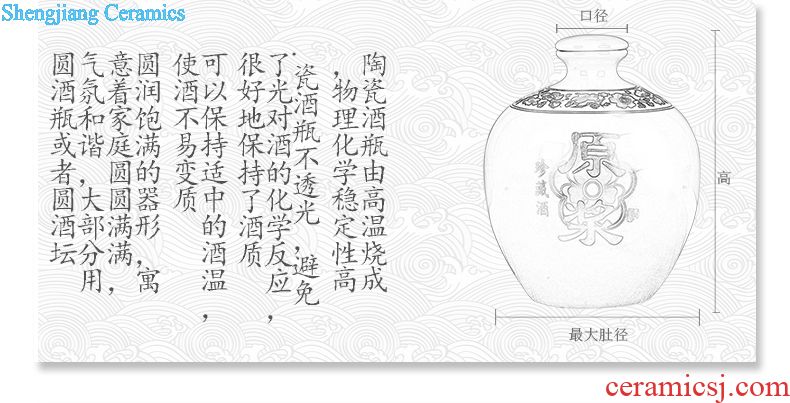 Shengjiang Ceramics
陶瓷酒瓶由高温烧成
，物理化学稳定性高
.瓷酒瓶不透光，避免
了光对酒的化学反应，
很好地保持了酒质
可以保持适中的酒温，
使酒不易变质
圆润饱满的器形，寓
意着家庭圆圆满满，
气氛和谐，大部分用
圆酒瓶或者圆酒坛
口径
原浆
珍藏酒
高
最大肚径
ceramicsj.com